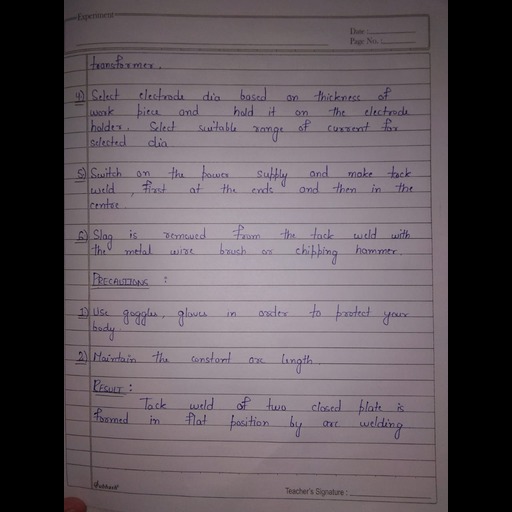 Experiment
Date :
Page No. :
transformer.
4) Select electrode dia based on thickness of
work piece and hold it on the electrode
holder. Select suitable range of current for
selected dia
5) Switch on the power supply and make tack
weld, first at the ends and then in the
centre.
6) Slag is removed from the tack weld with
the metal wire brush or chipping hammer.
PRECAUTIONS :
1) Use goggles, gloves in order to protect your
body.
2) Maintain the constant arc length.
RESULT :
Tack weld of two closed plate is
formed in flat position by arc welding
Teacher's Signature :